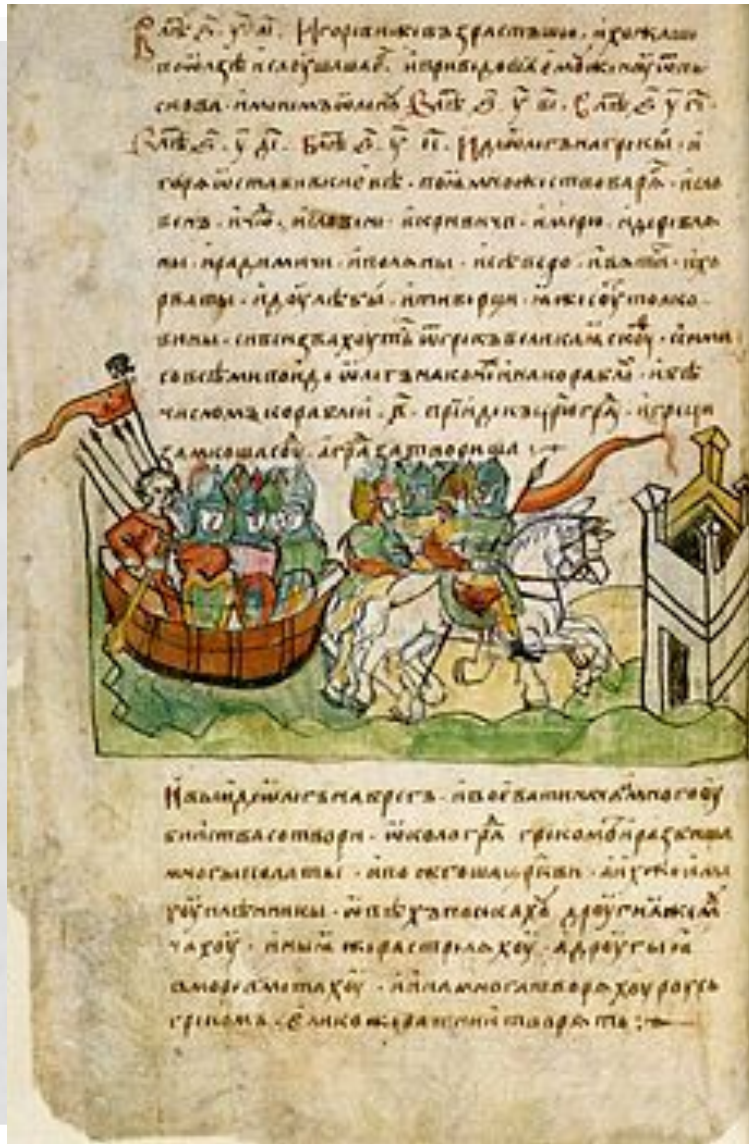 Игореви же възрастъшю · и хожаше
по ѡлзѣ и слоуша е҃г · и приведоша емоу женоу ѿ пь
скова · именемъ ѡленоу В лѣ҃ ѕ҃ у҃ в҃і · В лѣ҃ ѕ҃ у҃ г҃і ·
В лѣ҃ ѕ҃ у҃ д҃і · В лѣ҃ ѕ҃ у҃ е҃і · Иде ѡлегъ на грекы · и
горѧ ѡстави в киевѣ · поꙗ множество варѧ · и сло
венъ · и чю · и словени · и кривичи · и мерю · и деревлѧ
ны · и радимичи · и полѧны · и сѣверо · и вѧтичи · и хо
рваты · и доулѣбы · и тиверци · ꙗже соуть толко
вины · си вси звахоуть ѿ грекъ великаꙗ скоу · сими
со всѣми поиде ѡлегъ на конѣ и на кораблѣ · и бѣ
числомъ кораблеи · в҃ · приіде къ ц҃рюгра · и греци
замкоша соу · а гра затвориша
И вылиде ѡлегъ на брегъ · и воевати нача и много оу
бииства сотвори · ѡколо гра грекомъ и разбиша
многы полаты · и пожгоша ц҃ркви · а ихже има
хоу плѣнникы · ѡвѣхъ посѣкахоу дроугиꙗ же моу
чахоу · иныꙗ же растрелѧхоу · а дроугыꙗ в
море вметахоу · и ина многа творѧхоу роусь
грекомъ · елико же ратнии творѧть